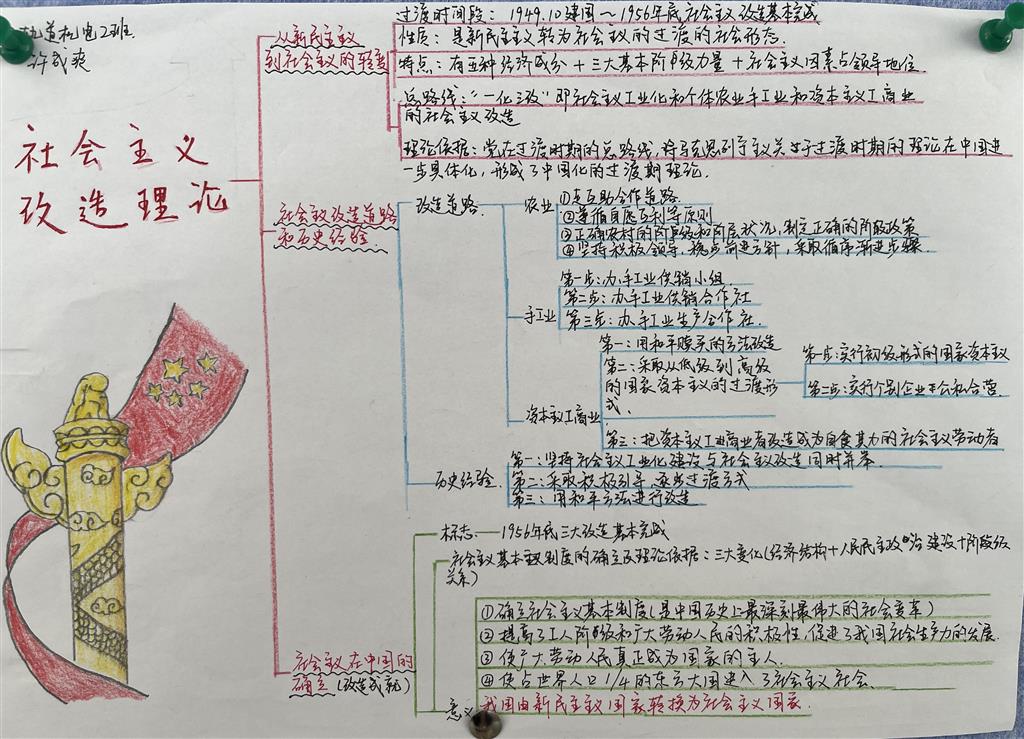 机电2班
社会主义
改造理论
从新民主主义
到社会主义的转变
过渡时间段：1949.10建国～1956年底社会主义改造基本完成
性质：是新民主义转为社会主义的过渡的社会形态.
特点：有五种经济成分+三大基本阶级力量+社会主义因素占领导地位.
总路线："一化三改"即社会主义工业化和个体农业手工业和资本主义工商业
的社会主义改造
理论依据：党在过渡时期的总路线，将马克思列宁主义关于过渡时期的理论在中国进
一步具体化，形成了中国化的过渡期理论.
社会主义改造道路
和历史经验
改造道路.
农业
①走互助合作道路.
②遵循自愿互利等原则
③正确农村的阶级和阶层状况，制定正确的阶级政策
④坚持积极领导，稳点前进方针，采取循序渐进步骤.
手工业
第一步：办手工业供销小组.
第二步：办手工业供销合作社
第三步：办手工业生产合作社.
资本主义工商业
第一：用和平赎买的方法改造
第二：采取从低级到高级
的国家资本主义的过渡形
式.
第一步：实行初级形式的国家资本主义
第二步：实行个别企业公私合营.
第三：把资本主义工业商业者改造成为自食其力的社会主义劳动者
历史经验.
第一：坚持社会主义工业化建设与社会主义改造同时并举.
第二：采取积极引导，逐步过渡方式
第三：用和平方法进行改造
社会主义在中国的
确立（改造成就）
标志—1956年底三大改造基本完成
社会主义基本制度的确立及理论依据：三大变化（经济结构+人民民主政治建设+阶级
关系）
意义
①确立社会主义基本制度（是中国历史上最深刻最伟大的社会变革）
②提高了工人阶级和广大劳动人民的积极性，促进了我国社会生产力的发展.
③使广大劳动人民真正成为国家的主人.
④使占世界人口1/4的东方大国进入了社会主义社会.
我国由新民主主义国家转换为社会主义国家.